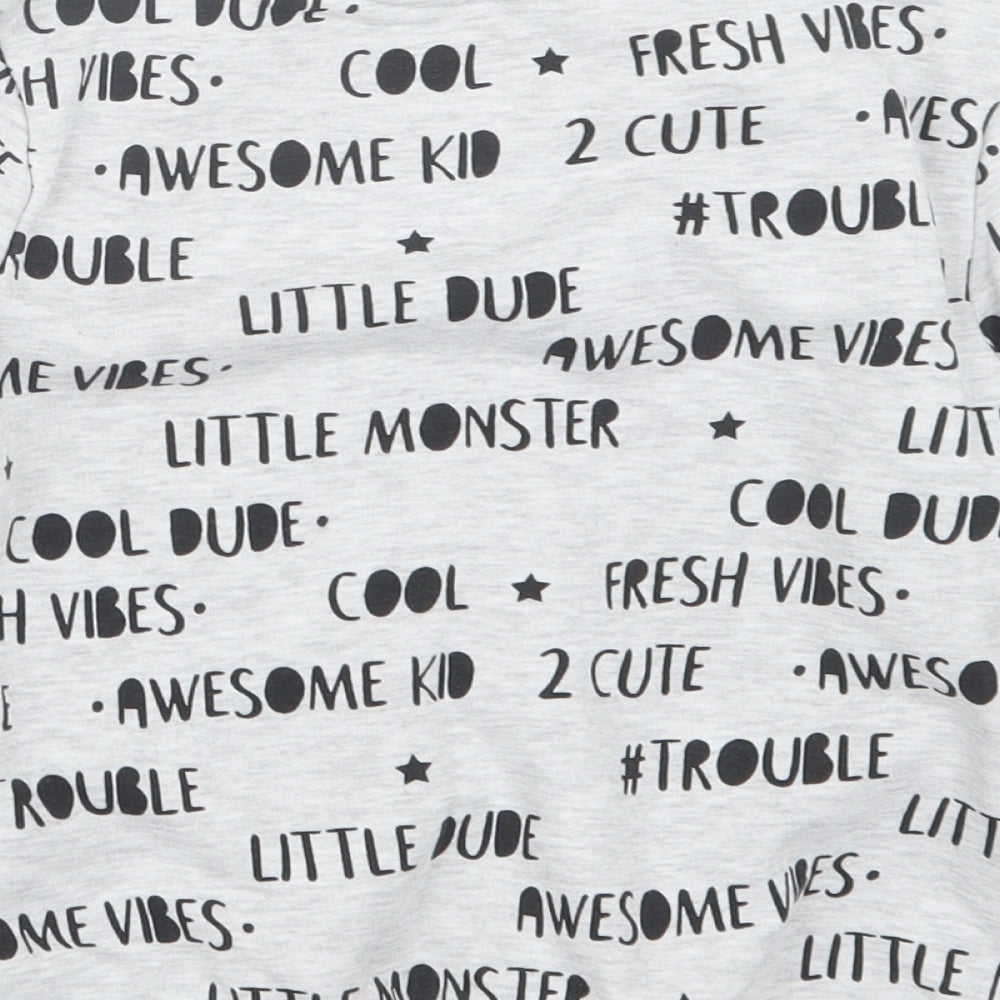 COOL DUDE·
H VIBES· COOL ★ FRESH VIBES·
·AWESOME KID 2 CUTE
ROUBLE ★ #TROUBL
LITTLE DUDE
ME VIBES· AWESOME VIBES
LITTLE MONSTER ★ LITT
COOL DUDE· COOL DUD
H VIBES· COOL ★ FRESH VIBES·
E ·AWESOME KID 2 CUTE ·AWESO
TROUBLE ★ #TROUBLE
LITTLE DUDE LITT
OME VIBES· AWESOME VIBES·
LITTLE MONSTER LITTLE